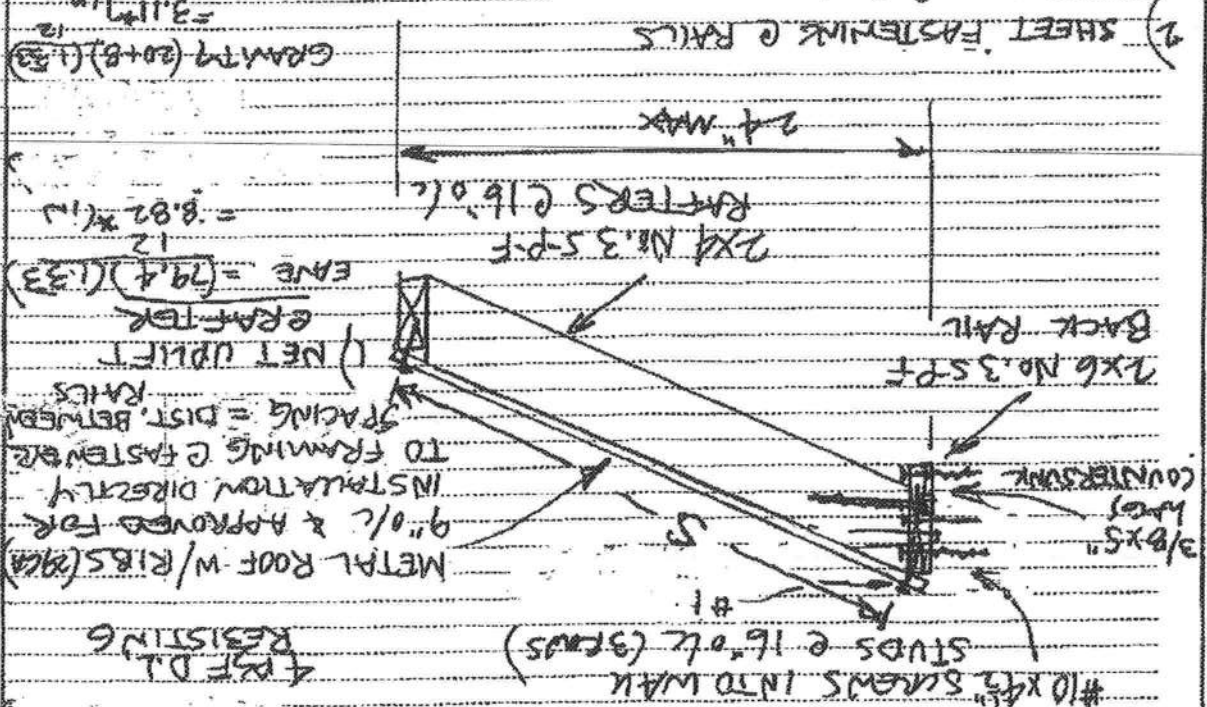 #10 x 4½" SCREWS INTO WALL
STUDS @ 16" o/c (3 ROWS)
#1
4 PSF D.L.
RESISTING
3/8 x 5"
LAG
COUNTERSUNK
5
METAL ROOF W/ RIBS (29GA)
9" o/c & APPROVED FOR
INSTALLATION DIRECTLY
TO FRAMING @ FASTENER
SPACING = DIST. BETWEEN
RAILS
2x6 No.3 S-P-F
BACK RAIL
1) NET UPLIFT
@ RAFTER
EAVE = (79.4)(1.33)
12
= 8.82 #/IN
2x4 No.3 S-P-F
RAFTERS @ 16" o/c
24" MAX
2) SHEET FASTENING @ RAILS
GRAVITY (20+8)(1.33)
12
= 3.11 #/IN